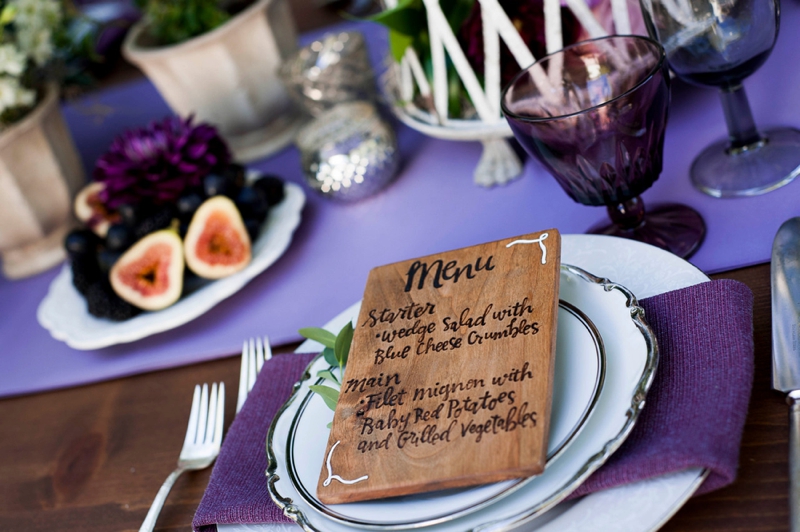 Menu
Starter
•Wedge Salad with
Blue Cheese Crumbles
Main
•Filet mignon with
Baby Red Potatoes
and Grilled Vegetables